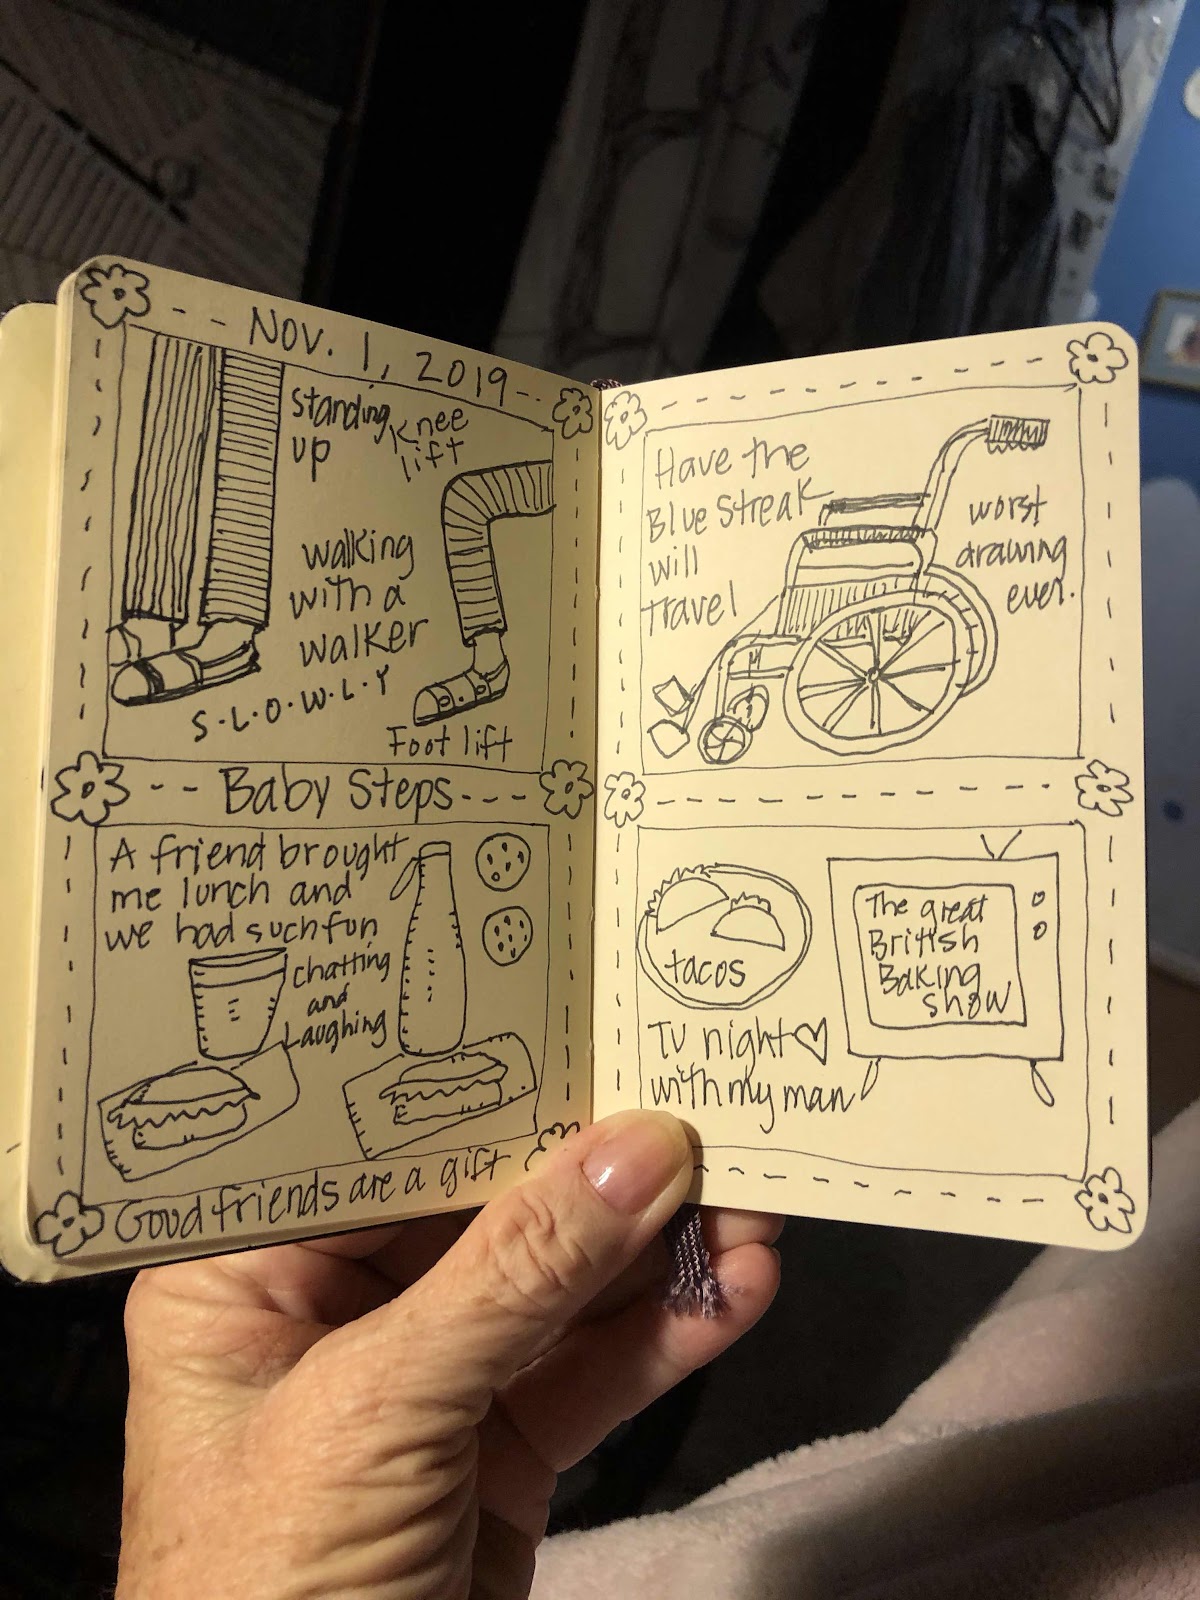 Nov. 1, 2019
standing
up
Knee
lift
walking
with a
walker
S.L.O.W.L.Y
Foot lift
Baby Steps
A friend brought
me lunch and
we had such fun
chatting
and
Laughing
Good friends are a gift
Have the
Blue Streak
will
Travel
worst
drawing
ever.
tacos
The great
British
Baking
show
TV night
with my man